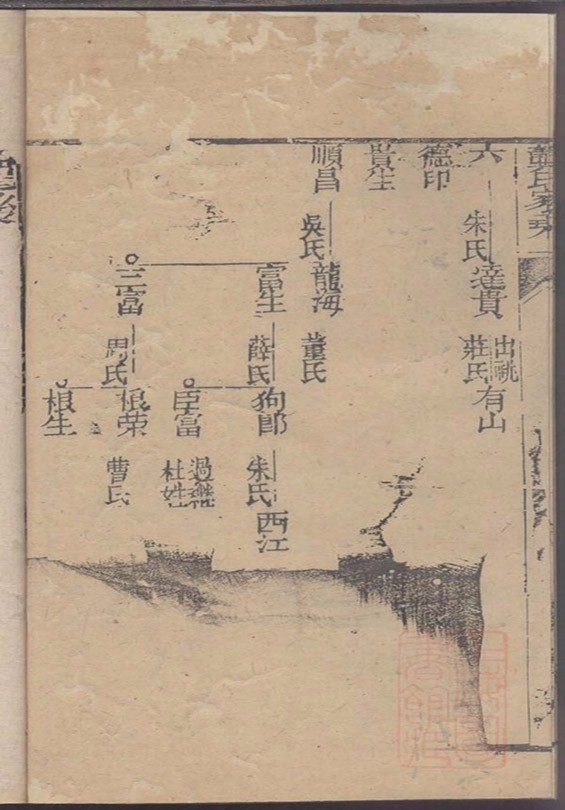 龔氏家乘
六
朱氏
達貴
出祧
莊氏
有山
德印
貴生
順昌
吳氏
龍海
董氏
富生
薛氏
狗郎
朱氏
西江
臣富
過繼
杜姓
三富
周氏
根荣
曹氏
根生